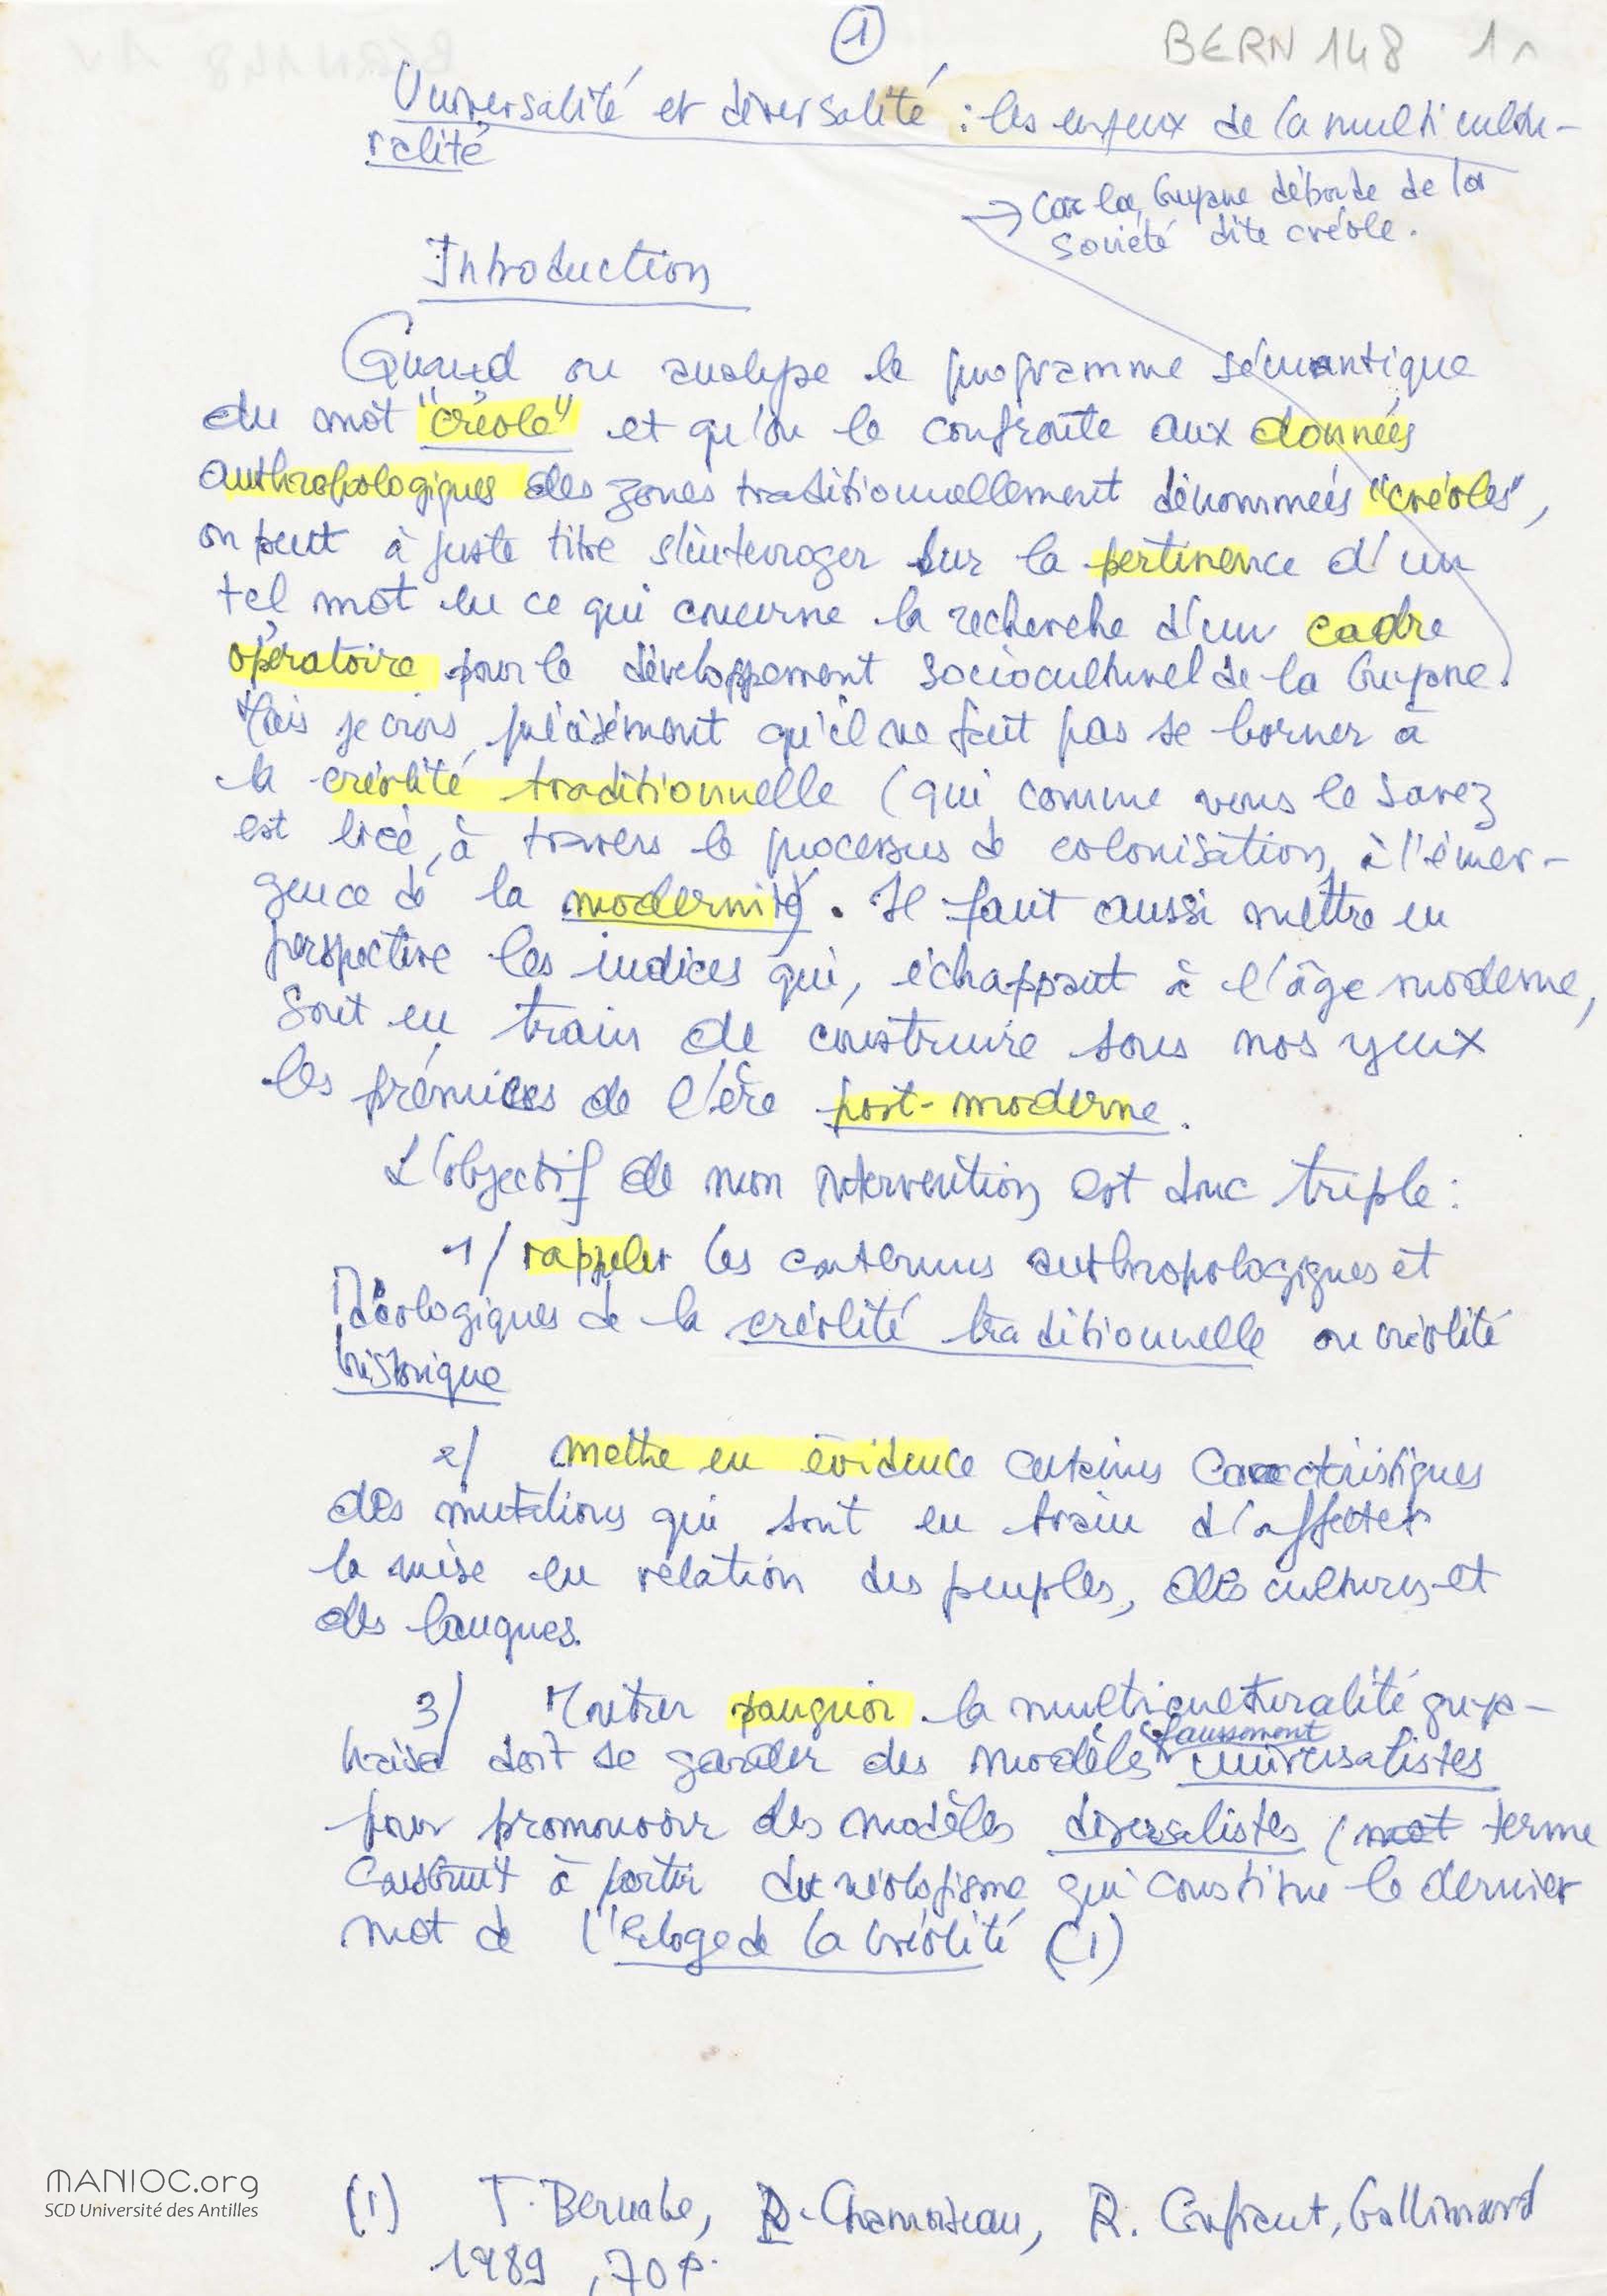 1
BERN 148 1r
Universalité et diversalité : les enjeux de la multicultu-
ralité
→ Car la Guyane déborde de la
société dite créole.
Introduction
Quand on analyse le programme sémantique
du mot "créole" et qu'on le confronte aux données
anthropologiques des zones traditionnellement dénommées "créoles",
on peut à juste titre s'interroger sur la pertinence d'un
tel mot en ce qui concerne la recherche d'un cadre
opératoire pour le développement socioculturel de la Guyane.
Mais je crois précisément qu'il ne faut pas se borner à
la créolité traditionnelle (qui comme vous le savez
est liée, à travers le processus de colonisation, à l'émer-
gence de la modernité). Il faut aussi mettre en
perspective les indices qui, échappant à l'âge moderne,
sont en train de construire sous nos yeux
les prémices de l'ère post-moderne.
L'objectif de mon intervention est donc triple :
1/ rappeler les contenus anthropologiques et
idéologiques de la créolité traditionnelle ou créolité
historique
2/ mettre en évidence certaines caractéristiques
des mutations qui sont en train d'affecter
la mise en relation des peuples, des cultures et
des langues.
3/ Montrer pourquoi la multiculturalité guya-
naise doit se garder des modèles faussement universalistes
pour promouvoir des modèles diversalistes (mot terme
construit à partir du néologisme qui constitue le dernier
mot de l'Eloge de la Créolité (1)
(1) J. Bernabe, P. Chamoiseau, R. Confiant, Gallimard
1989, 70 p.
MANIOC.org
SCD Université des Antilles